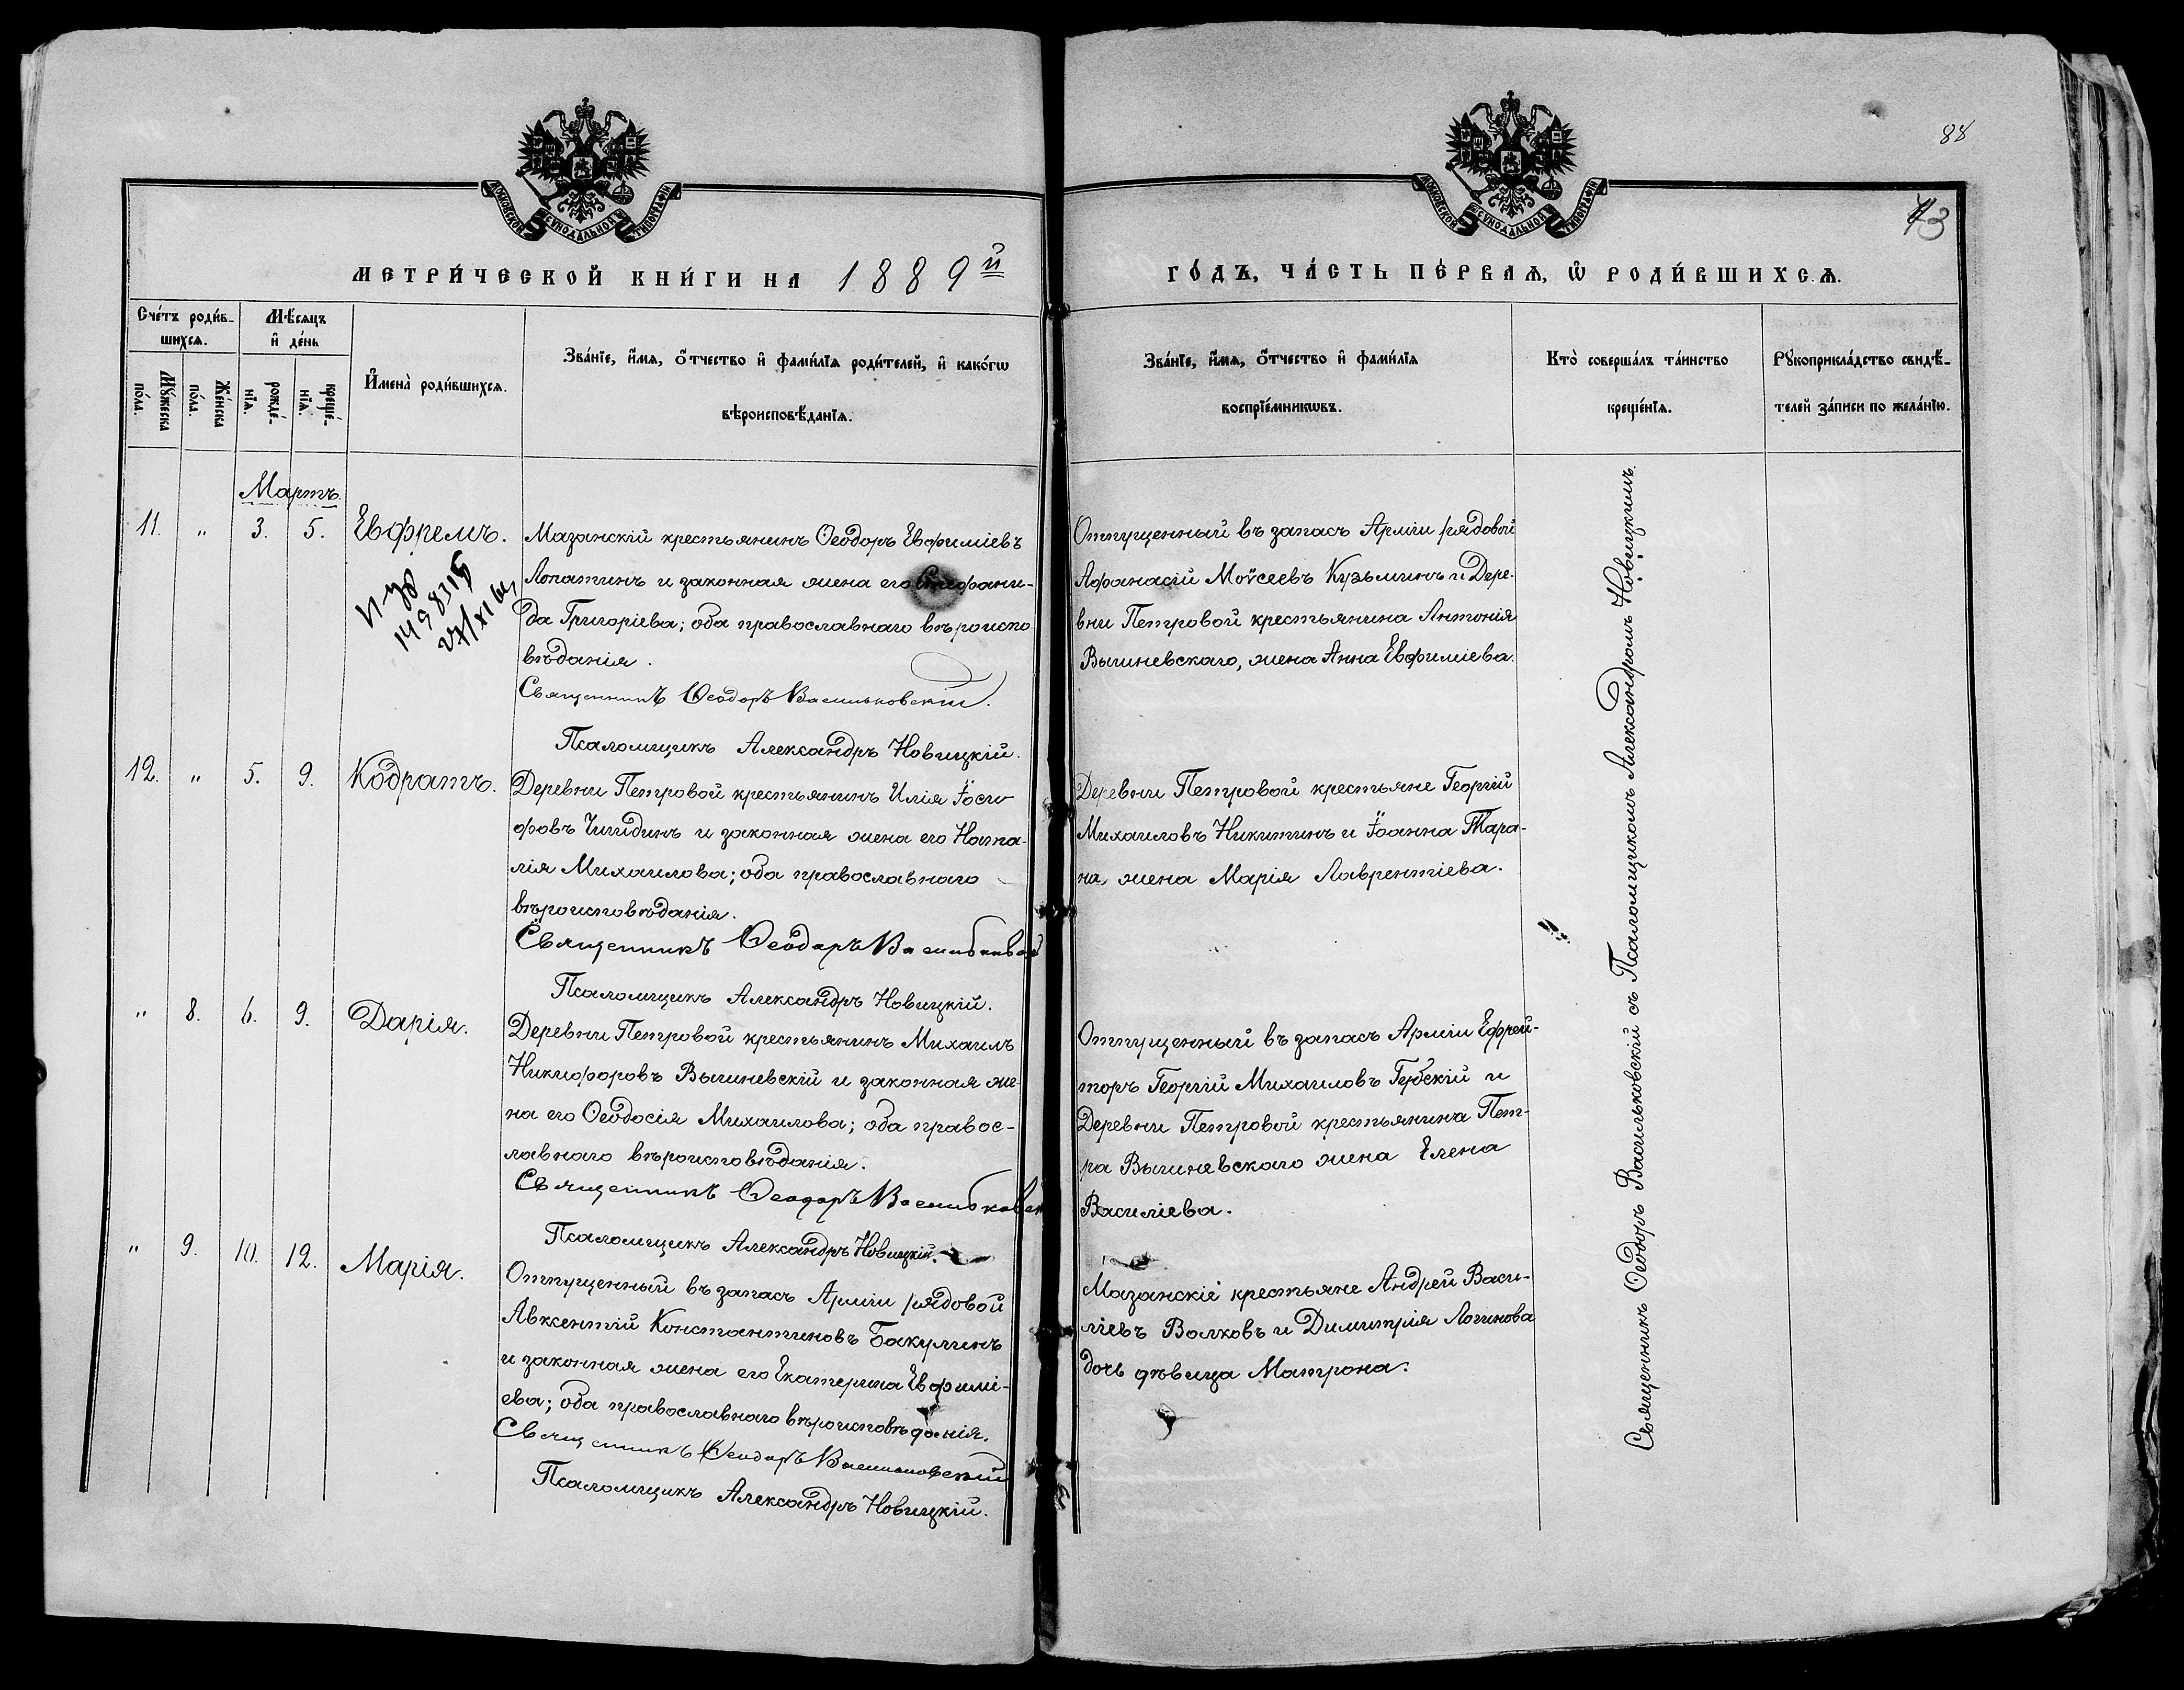 88
73
МОСКОВСКОЙ СѴНОДАЛЬНОЙ ТИПОГРАФІИ
МОСКОВСКОЙ СѴНОДАЛЬНОЙ ТИПОГРАФІИ
МЕТРИ́ЧЕСКОЙ КНИ́ГИ НА 1889й
ГО́ДЪ, ЧА́СТЬ ПЕ́РВАѦ, Ѿ РОДИ́ВШИХСѦ.
Сче́тъ роди́в-
шихсѧ.
Мꙋ́жеска по́ла.
Же́нска по́ла.
Мѣ́сѧцъ
и҆ де́нь
рожде́-
нїѧ.
креще́-
нїѧ.
И҆мена̀ роди́вшихсѧ.
Зва́нїе, и҆́мѧ, ѻ҆́тчество и҆ фами́лїѧ роди́телей, и҆ како́гѡ
вѣроисповѣ́данїѧ.
Зва́нїе, и҆́мѧ, ѻ҆́тчество и҆ фами́лїѧ
воспрїе́мникѡвъ.
Кто̀ соверша́лъ та́инство
креще́нїѧ.
Рꙋкоприкла́дство свидѣ́-
телей за́писи по жела́нїю.
Мартъ.
11. " 3. 5. Евфремъ.
Мазанскій крестьянинъ Ѳеодоръ Евфиміевъ
Лопатинъ и законная жена его Стефани-
да Григоріева; оба православнаго вѣроиспо
вѣданія.
Священникъ Ѳеодоръ Васильковскій.
Псаломщикъ Александръ Новицкій.
Отпущенный въ запасъ Арміи рядовой
Афанасій Моѵсеевъ Кузьминъ и Дере-
вни Петровой крестьянина Антонія
Вышневскаго, жена Анна Евфиміева.
12. " 5. 9. Кодратъ.
Деревни Петровой крестьянинъ Илія Іоси-
фовъ Чигидинъ и законная жена его Ната-
лія Михаилова; оба православнаго
вѣроисповѣданія.
Священникъ Ѳеодоръ Васильковскій
Псаломщикъ Александръ Новицкій.
Деревни Петровой крестьяне Георгій
Михаиловъ Никитинъ и Іоанна Тара-
на, жена Марія Лаврентіева.
" 8. 6. 9. Дарія.
Деревни Петровой крестьянинъ Михаилъ
Никифоровъ Вышневскій и законная же-
на его Ѳеодосія Михаилова; оба правос-
лавнаго вѣроисповѣданія.
Священникъ Ѳеодоръ Васильковск
Псаломщикъ Александръ Новицкій.
Отпущенный въ запасъ Арміи Ефрей-
торъ Георгій Михаиловъ Губскій и
Деревни Петровой крестьянина Пет-
ра Вышневскаго жена Елена
Василіева.
" 9. 10. 12. Марія.
Отпущенный въ запасъ Арміи рядовой
Авксентій Константиновъ Бакулинъ
и законная жена его Екатерина Евфимі-
ева; оба православнаго вѣроисповѣданія.
Священникъ Ѳеодоръ Васильковскій
Псаломщикъ Александръ Новицкій.
Мазанскіе крестьяне Андрей Васи-
ліевъ Волковъ и Димитрія Логинова
дочь дѣвица Матрона.
Священникъ Ѳеодоръ Васильковскій съ Псаломщикомъ Александромъ Новицкимъ.